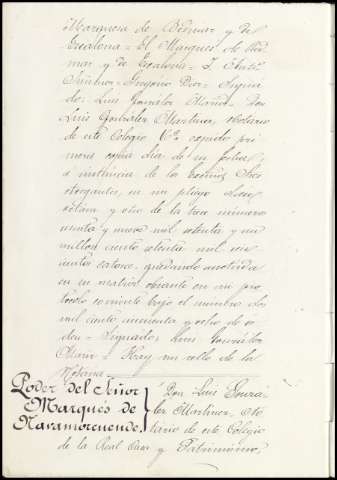 Marquesa de Bedmar y de
Escalona = El Marques de Bed
mar y de Escalona =
Señores = Gregorio = Signa
do: Luis Gonzalez Martinez Don
Luis Gonzalez Martinez, Notario
de este Colegio expido pri
mera copia dia de su fecha
á instancia de los Señores
otorgantes, en un pliego clase
y otro de la once número
y nueve mil setenta y un
millon ciento setenta mil no
cientos catorce, quedando anotada
en su matriz obrante en mi pro
tocolo corriente bajo el número dos
mil ciento cincuenta y ocho de or
den = Signado, Luis Gonzalez
Hay un sello de la
Notaria =
Poder del Señor
Marqués de
Navamorcuende.
Don Luis Gonza
lez Martinez, No
tario de este Colegio
de la Real Casa y Patrimonio,